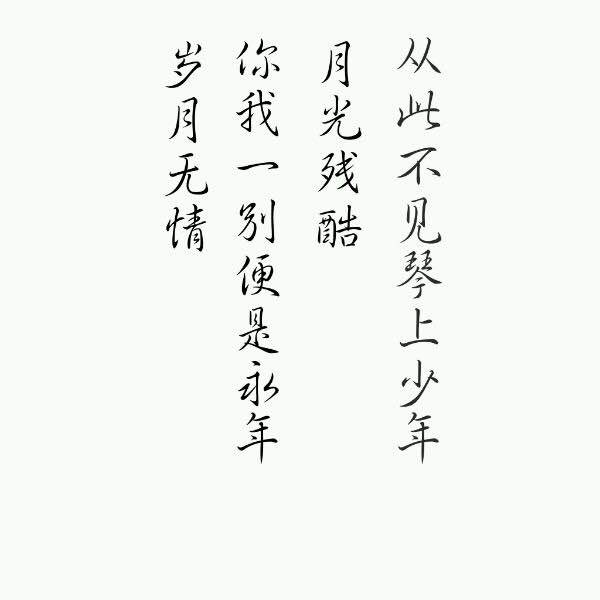 从此不见琴上少年
月光残酷
你我一别便是永年
岁月无情